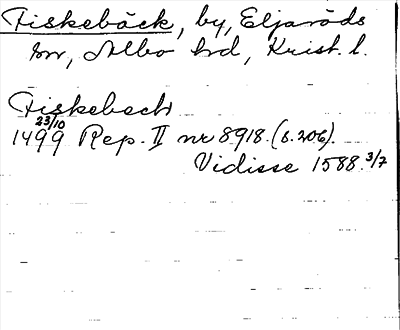 Fiskebäck, by, Eljaröds
sn, Albo hd, Krist. l.
Fiskebech
23/10
1499 Rep. II nr 8918. (s. 206).
Vidisse 1588 3/7